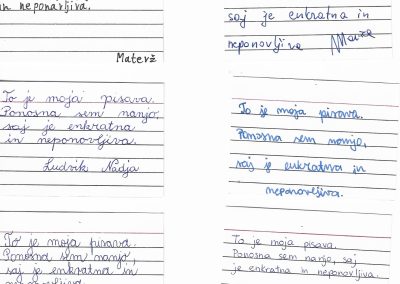 in neponovljiva.
Materž
saj je enkratna in
neponovljiva
To je moja pisava.
Ponosna sem nanjo,
saj je enkratna
in neponovljiva.
Ludvik Nadja
To je moja pisava.
Ponosna sem nanjo,
saj je enkratna in
neponovljiva.
To je moja pisava.
Ponosna sem nanjo,
saj je enkratna in
neponovljiva
To je moja pisava.
Ponosna sem nanjo, saj
je enkratna in neponovljiva.